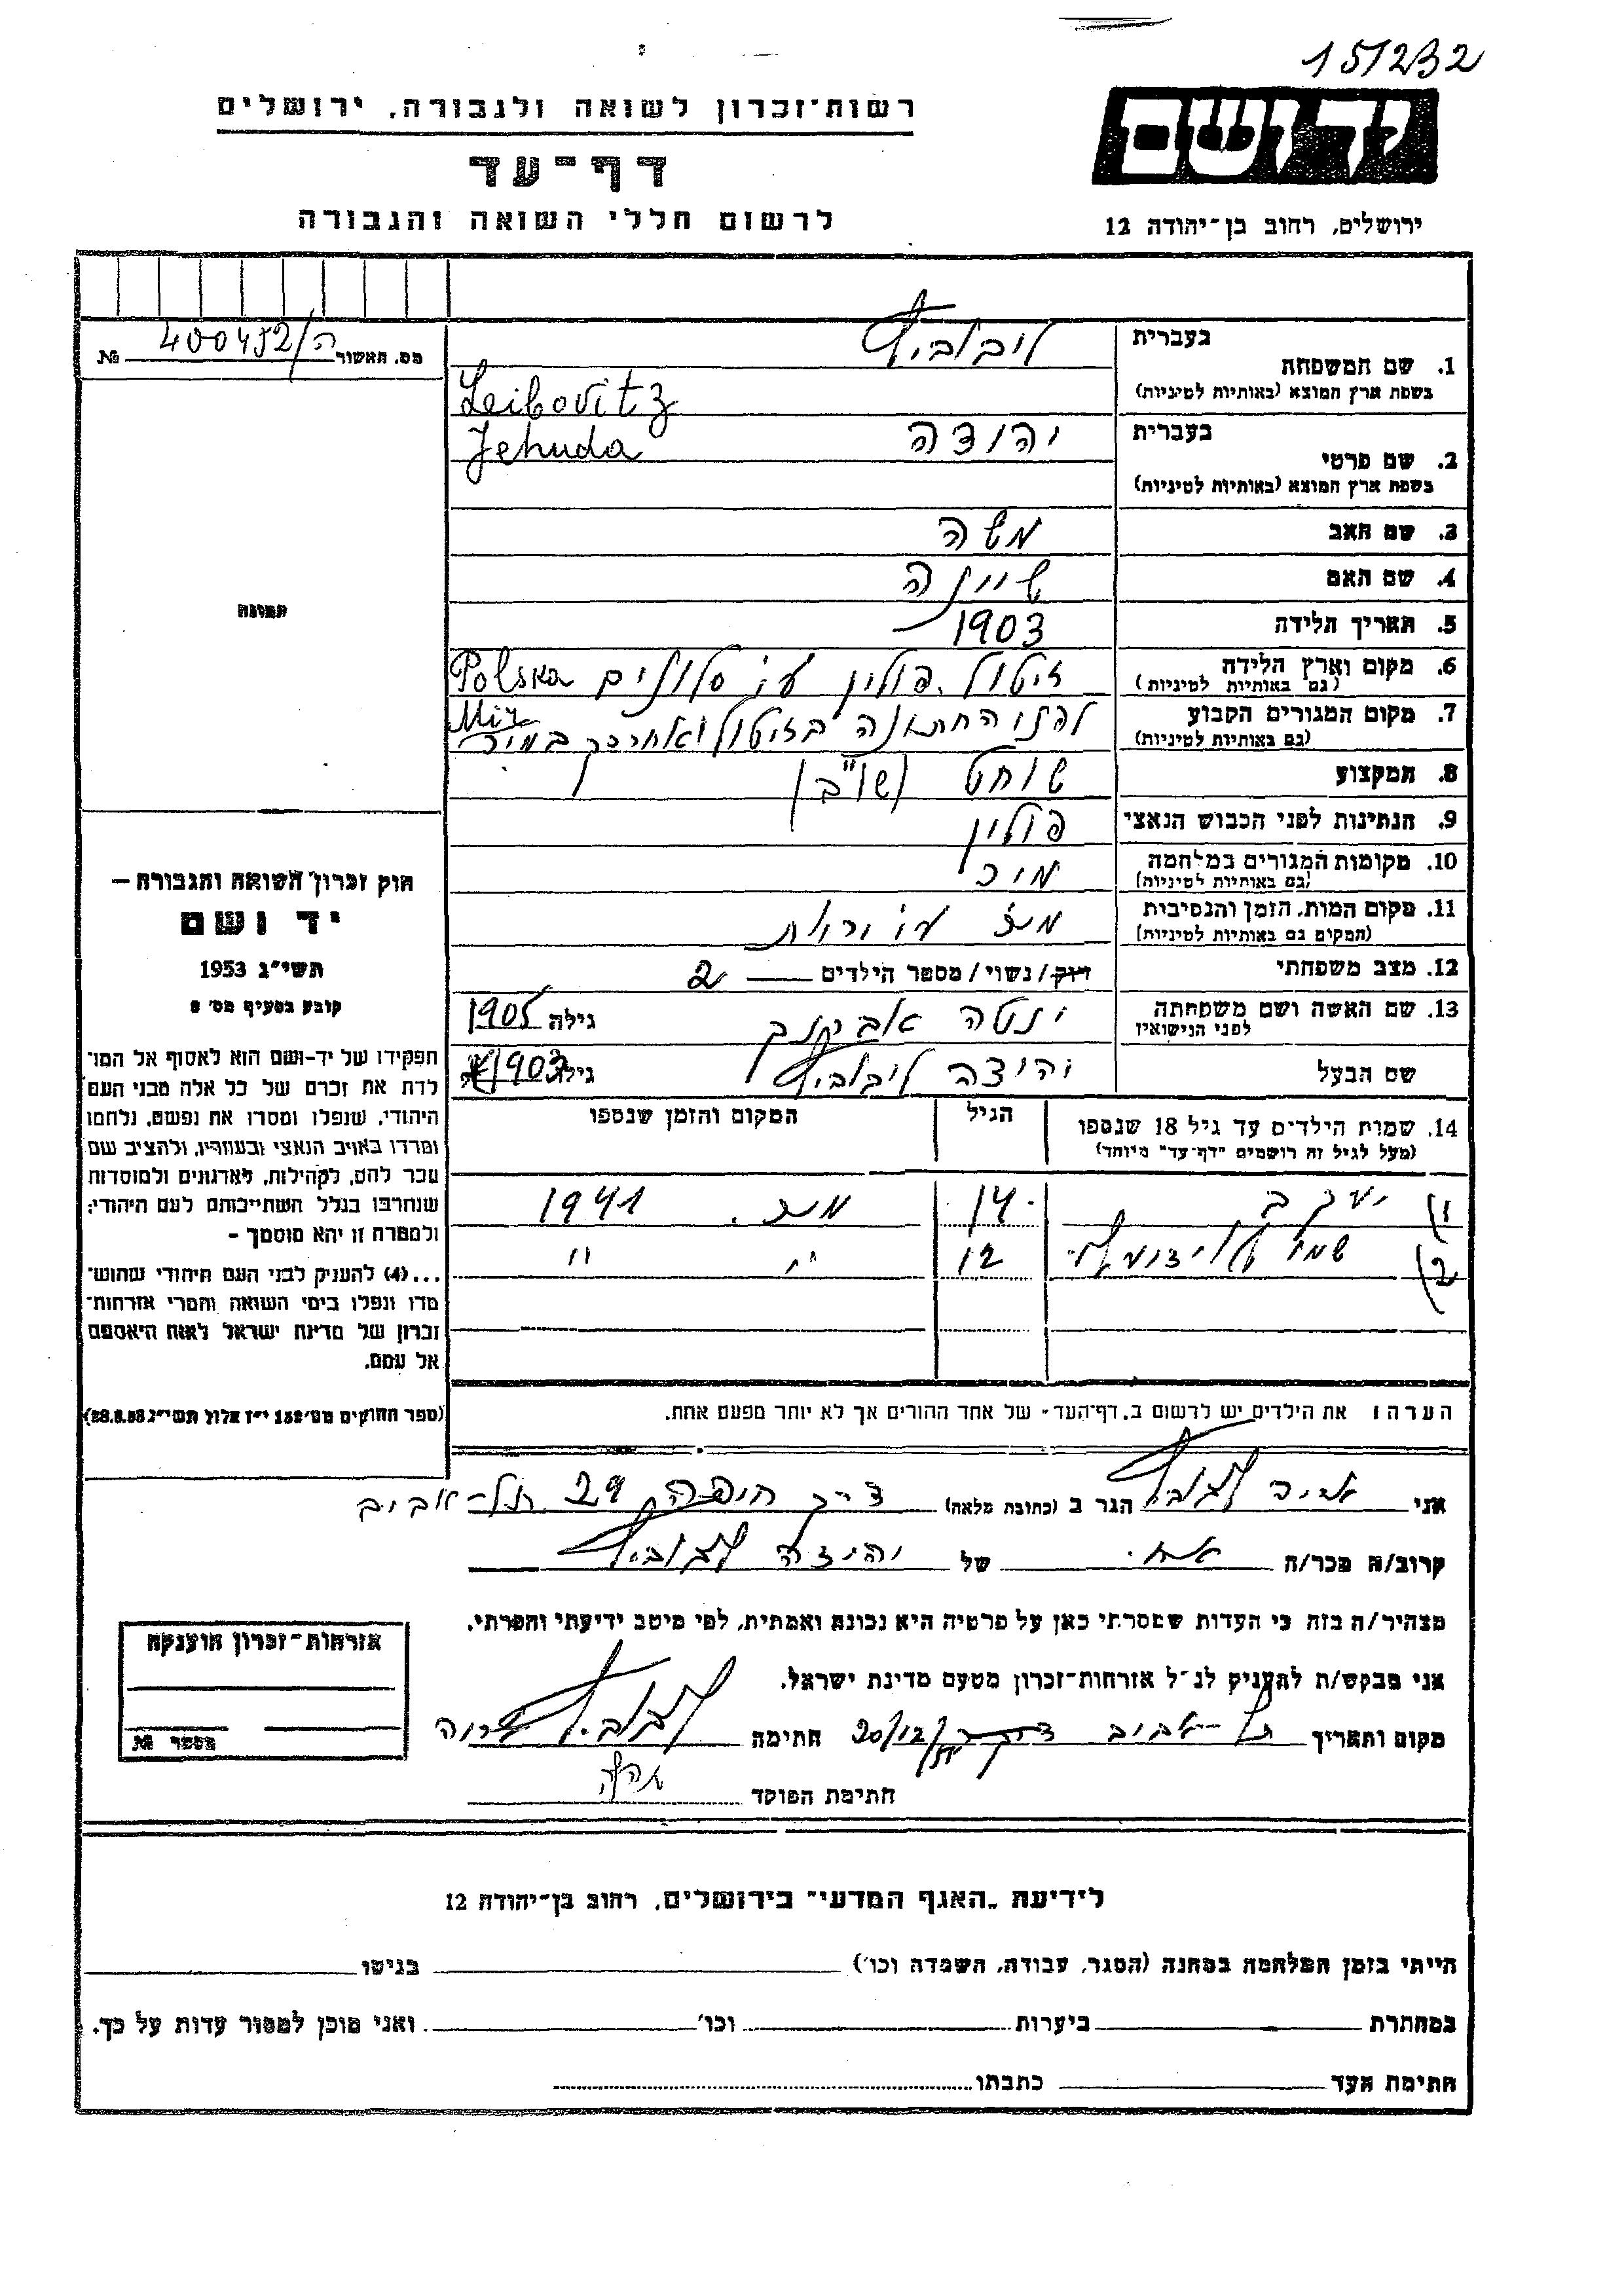 151232
רשות-זכרון לשואה ולגבורה, ירושלים
יד ושם
דף-עד
לרשום חללי השואה והגבורה
ירושלים, רחוב בן-יהודה 12
מס. תאשור ה/400452 №
תמונה
חוק זכרון השואה והגבורה —
יד ושם
תשי"ג 1953
קובע בסעיף מס' 2
תפקידו של יד-ושם הוא לאסוף אל המו-
לדת את זכרם של כל אלה מבני העם
היהודי, שנפלו ומסרו את נפשם, נלחמו
ומרדו באויב הנאצי ובעוזריו, ולהציב שם
וזכר להם, לקהילות, לארגונים ולמוסדות
שנחרבו בגלל השתייכותם לעם היהודי;
ולמטרה זו יהא מוסמך -
...(4) להעניק לבני העם היהודי שהוש-
מדו ונפלו בימי השואה והמרי אזרחות-
זכרון של מדינת ישראל לאות היאספם
אל עמם.
(ספר החוקים מס' 132 י"ז אלול תשי"ג 28.8.53)
בעברית ליבוביץ
1. שם המשפחה
בשפת ארץ המוצא (באותיות לטיניות) Leibovitz
בעברית יהודה Jehuda
2. שם פרטי
בשפת ארץ המוצא (באותיות לטיניות)
3. שם האב משה
4. שם האם שיינה
5. תאריך הלידה 1903
6. מקום וארץ הלידה זיטול פולין ע"י סלונים Polska
(גם באותיות לטיניות)
7. מקום המגורים הקבוע לפני החתונה בזיטול ואחרכך במיר Mir
(גם באותיות לטיניות)
8. המקצוע שוחט (שו"ב)
9. הנתינות לפני הכבוש הנאצי פולין
10. מקומות המגורים במלחמה מיר
(גם באותיות לטיניות)
11. מקום המות, הזמן והנסיבות
(המקום גם באותיות לטיניות)
12. מצב משפחתי רווק/נשוי/מספר הילדים 2
13. שם האשה ושם משפחתה ינטה גילה 1905
לפני הנישואין
שם הבעל יהודה ליבוביץ גילו 1903
14. שמות הילדים עד גיל 18 שנספו הגיל המקום והזמן שנספו
(מעל לגיל זה רושמים "דף-עד" מיוחד)
1) יעקב 14 1941
2) 12 " "
הערה: את הילדים יש לרשום ב"דף-העד" של אחד ההורים אך לא יותר מפעם אחת.
אני ליבוביץ הגר ב (כתובת מלאה) דרך חיפה 29 תל-אביב
קרוב/ה מכר/ה אחי של יהודה ליבוביץ
מצהיר/ה בזה כי העדות שמסרתי כאן על פרטיה היא נכונה ואמתית, לפי מיטב ידיעתי והכרתי.
אני מבקש/ת להעניק לנ"ל אזרחות-זכרון מטעם מדינת ישראל.
מקום ותאריך תל-אביב 20/12/ חתימה ליבוביץ
חתימת הפוקד
אזרחות-זכרון הוענקה
מספר №
לידיעת "האגף המדעי" בירושלים, רחוב בן-יהודה 12
הייתי בזמן המלחמה במחנה (הסגר, עבודה, השמדה וכו') בגיטו
במחתרת ביערות וכו' ואני מוכן למסור עדות על כך.
חתימת העד כתבתו